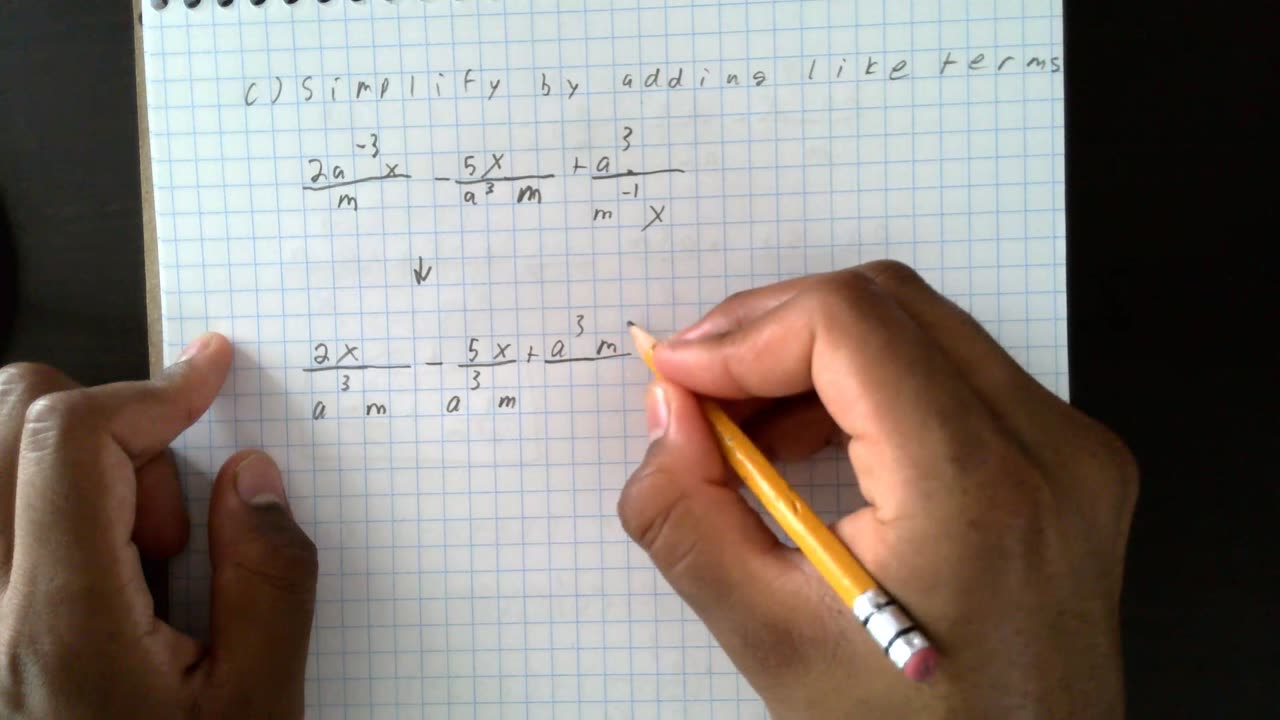 c) Simplify by adding like terms
2a^-3 x / m - 5x / a^3 m + a^3 / m^-1 x
↓
2x / a^3 m - 5x / a^3 m + a^3 m